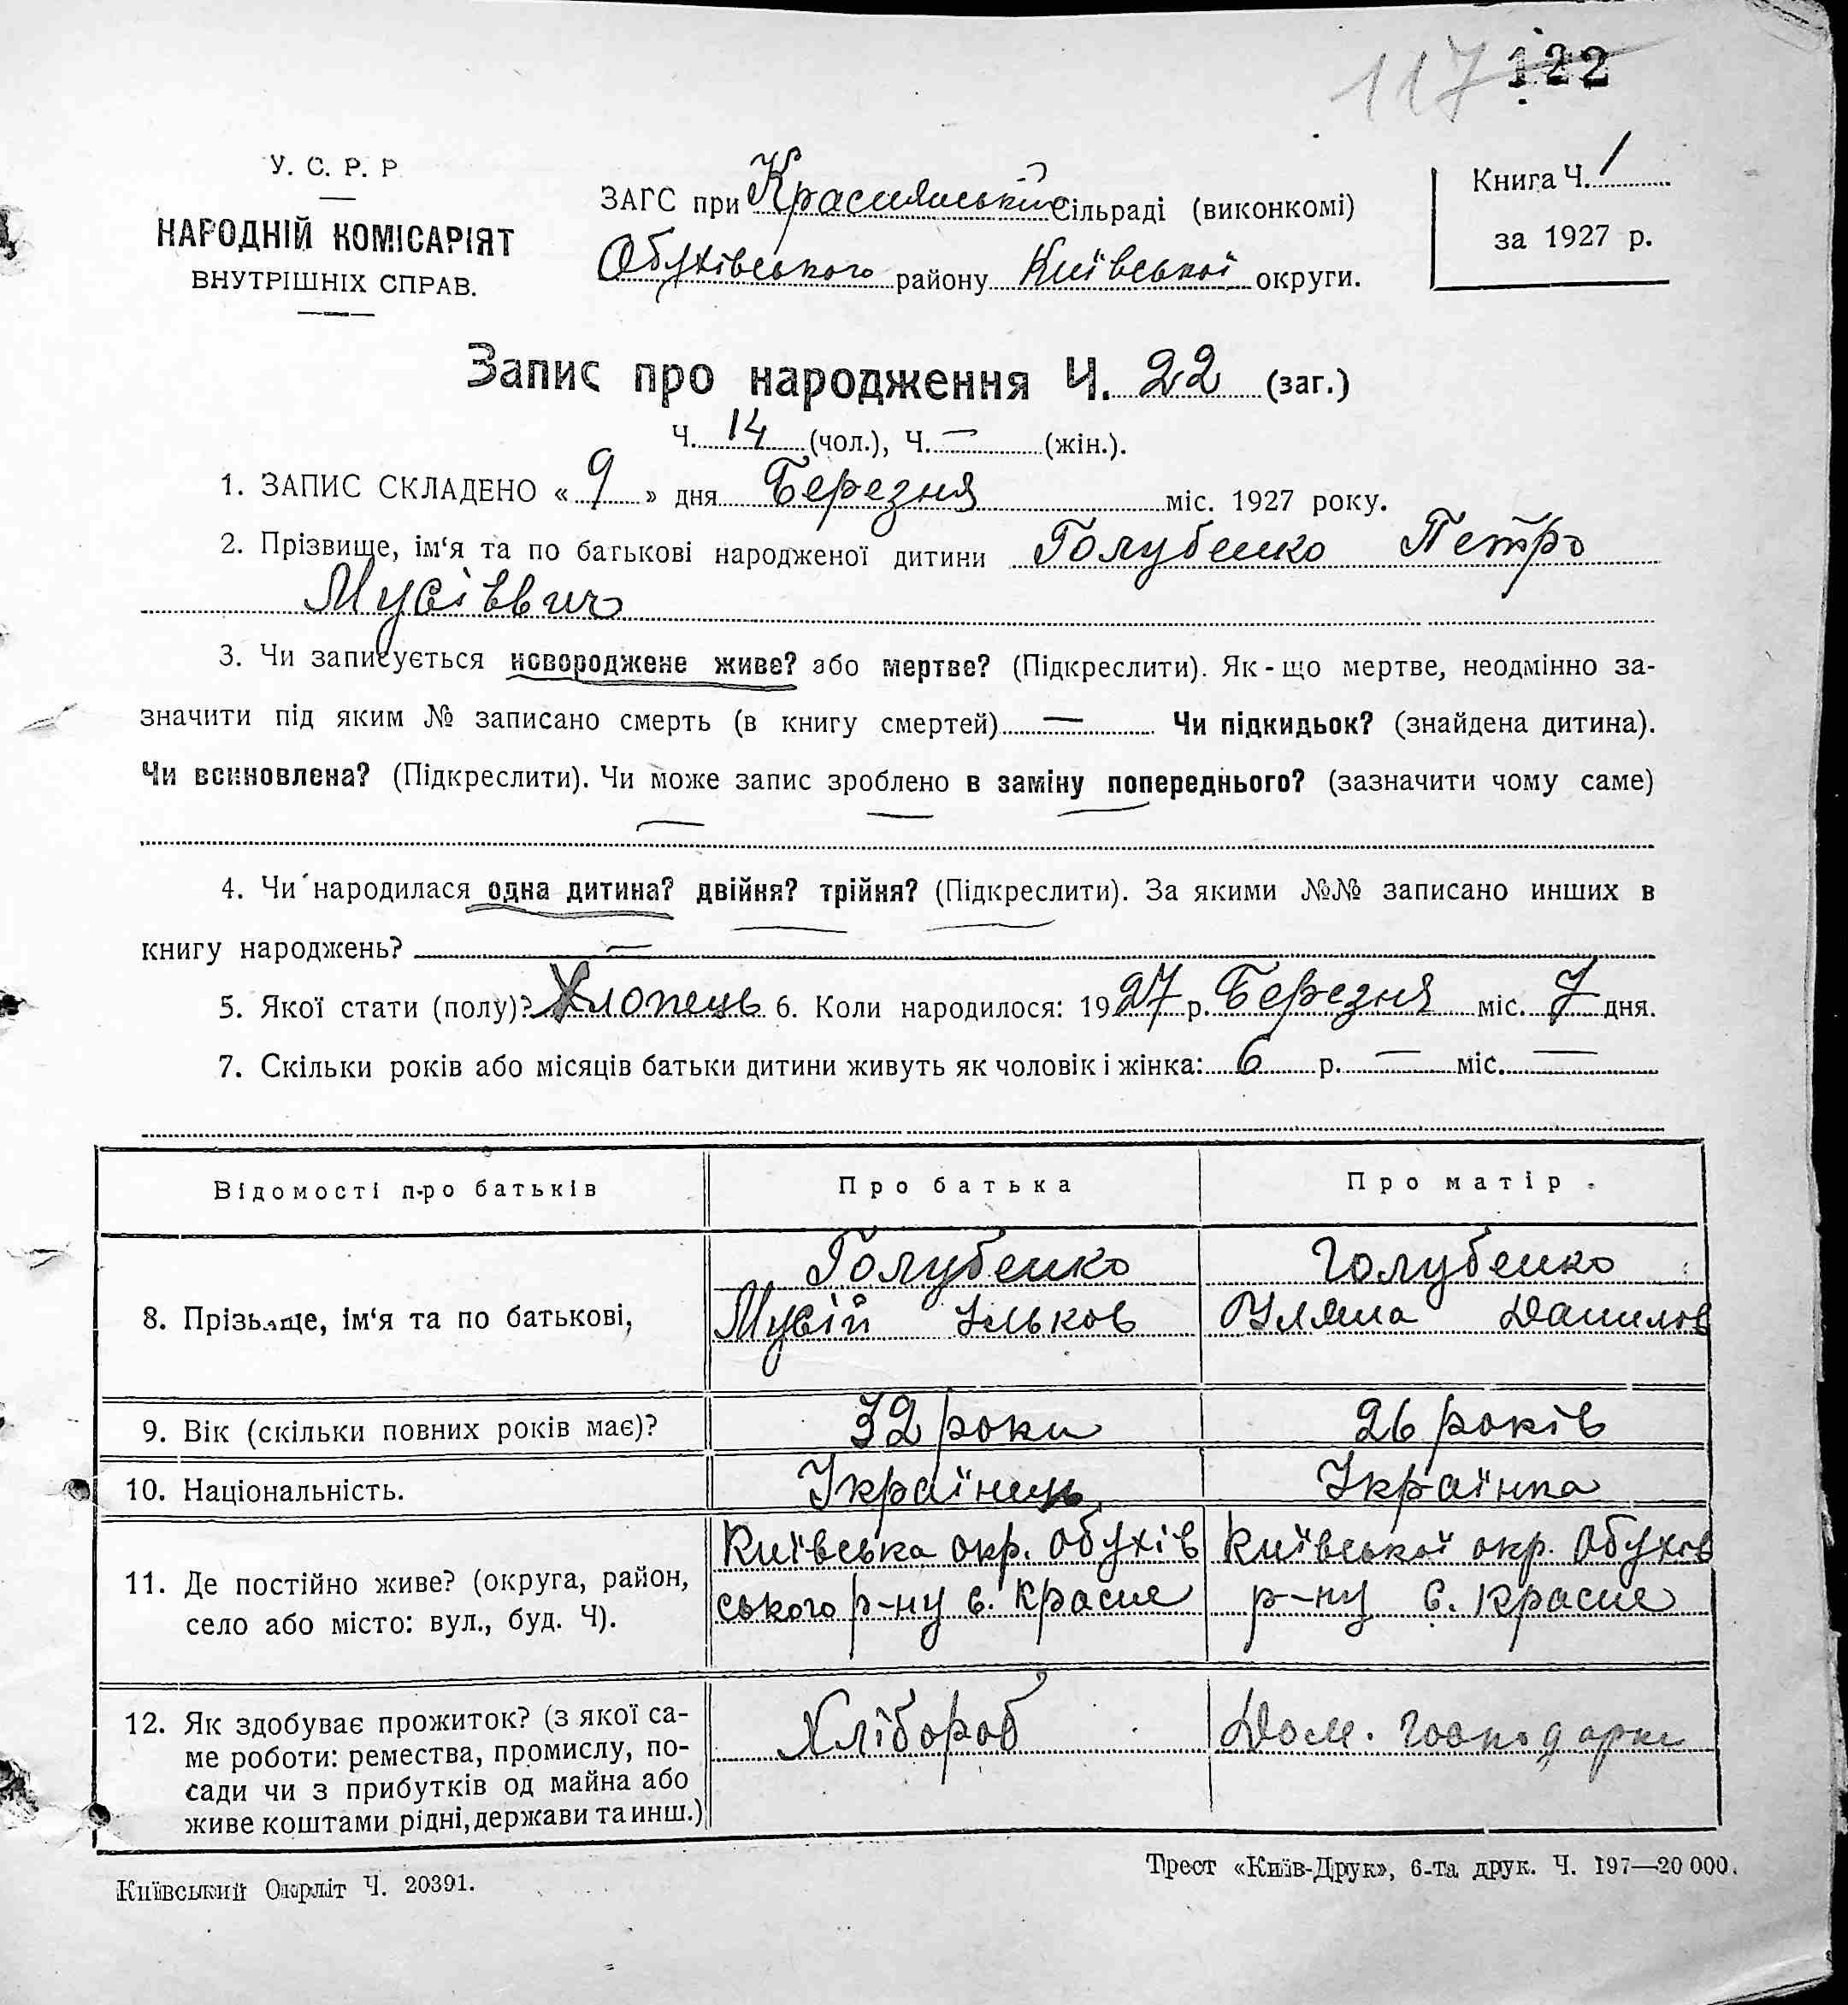 117 122
У. С. Р. Р.
НАРОДНІЙ КОМІСАРІЯТ
ВНУТРІШНІХ СПРАВ.
ЗАГС при Краснянській Сільраді (виконкомі)
Обухівського району Київської округи.
Книга Ч. 1
за 1927 р.
Запис про народження Ч. 22 (заг.)
Ч. 14 (чол.), Ч. — (жін.).
1. ЗАПИС СКЛАДЕНО « 9 » дня Березня міс. 1927 року.
2. Прізвище, ім‘я та по батькові народженої дитини Голубенко Петро
Мусіввич
3. Чи записується новороджене живе? або мертве? (Підкреслити). Як-що мертве, неодмінно за-
значити під яким № записано смерть (в книгу смертей) — Чи підкидьок? (знайдена дитина).
Чи всиновлена? (Підкреслити). Чи може запис зроблено в заміну попереднього? (зазначити чому саме)
4. Чи народилася одна дитина? двійня? трійня? (Підкреслити). За якими №№ записано инших в
книгу народжень? —
5. Якої стати (полу)? Хлопець 6. Коли народилося: 1927 р. Березня міс. 7 дня.
7. Скільки років або місяців батьки дитини живуть як чоловік і жінка: 6 р. — міс. —
Відомості про батьків Про батька Про матір
8. Прізвище, ім‘я та по батькові,
Голубенко
Мусій Ільков
Голубенко
Уляна Данилов
9. Вік (скільки повних років має)? 32 роки 26 років
10. Національність. Українець Українка
11. Де постійно живе? (округа, район,
село або місто: вул., буд. Ч).
Київська окр. Обухів
ського р-ну с. Красне
Київської окр. Обухов
р-ну с. Красне
12. Як здобуває прожиток? (з якої са-
ме роботи: ремества, промислу, по-
сади чи з прибутків од майна або
живе коштами рідні, держави та инш.)
Хлібороб
Дом. господарка
Київський Окрліт Ч. 20391.
Трест «Київ-Друк», 6-та друк. Ч. 197—20 000.